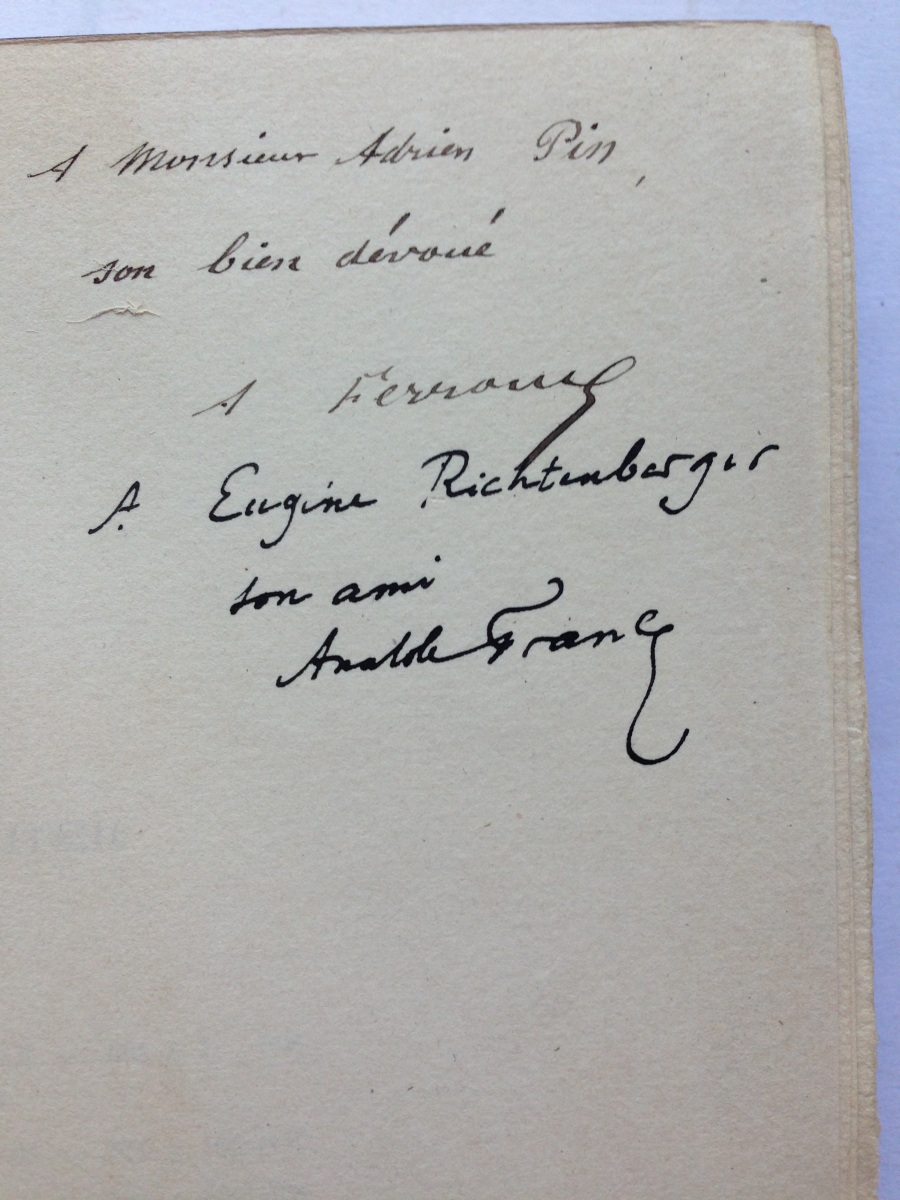 A Monsieur Adrien Pin,
son bien dévoué
A Ferroud
A Eugène Richtenberger
son ami
Anatole France